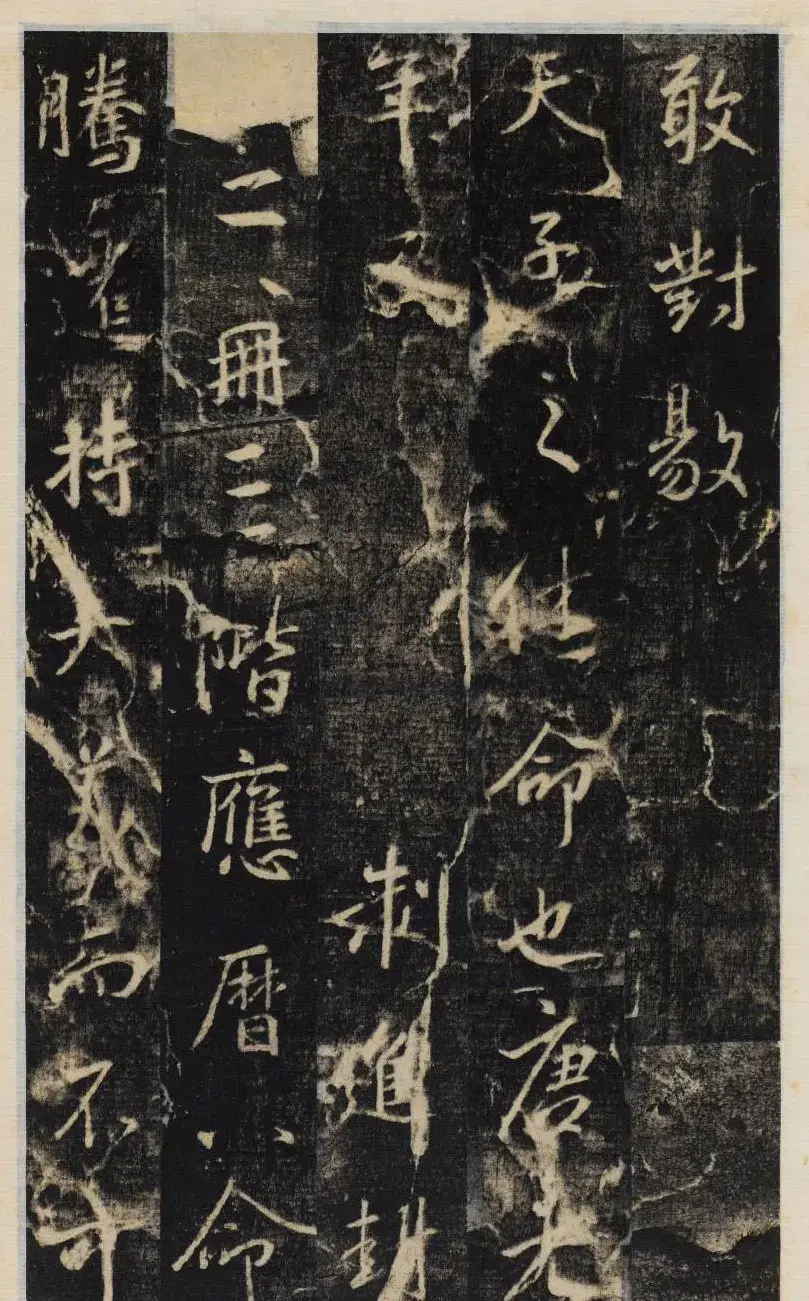 敢對敭
天子之休命也唐
年制進封
二冊三階應曆八命
騰持大義而不